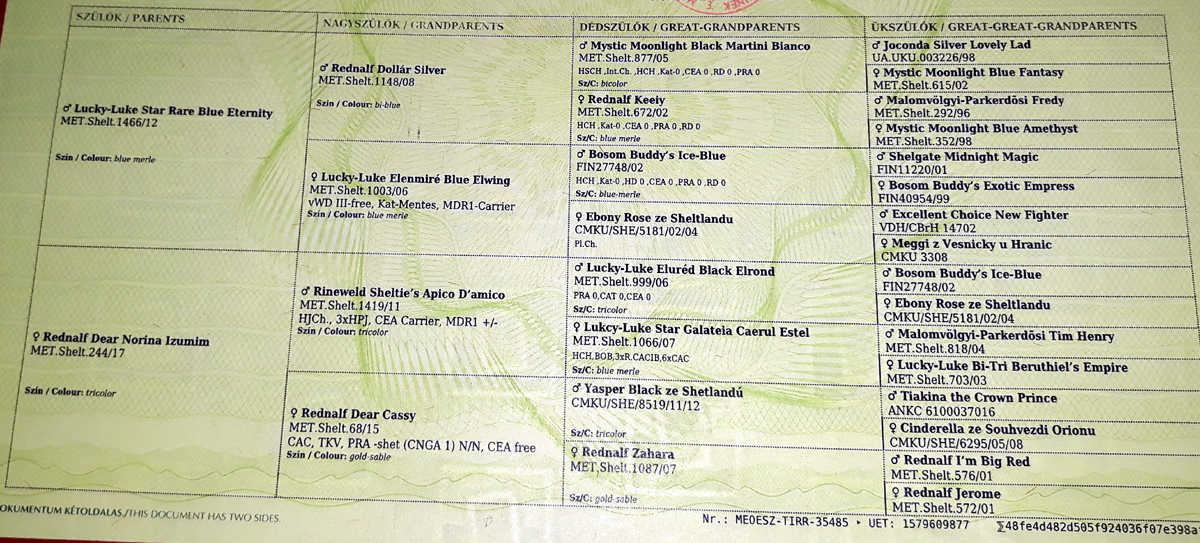 SZÜLŐK / PARENTS
♂ Lucky-Luke Star Rare Blue Eternity
MET.Shelt.1466/12
Szín / Colour: blue merle
♀ Rednalf Dear Norina Izumim
MET.Shelt.244/17
Szín / Colour: tricolor
NAGYSZÜLŐK / GRANDPARENTS
♂ Rednalf Dollár Silver
MET.Shelt.1148/08
Szín / Colour: bi-blue
♀ Lucky-Luke Elenmiré Blue Elwing
MET.Shelt.1003/06
vWD III-free, Kat-Mentes, MDR1-Carrier
Szín / Colour: blue merle
♂ Rineweld Sheltie's Apico D'amico
MET.Shelt.1419/11
HJCh., 3xHPJ, CEA Carrier, MDR1 +/-
Szín / Colour: tricolor
♀ Rednalf Dear Cassy
MET.Shelt.68/15
CAC, TKV, PRA -shet (CNGA 1) N/N, CEA free
Szín / Colour: gold-sable
DÉDSZÜLŐK / GREAT-GRANDPARENTS
♂ Mystic Moonlight Black Martini Bianco
MET.Shelt.877/05
HSCH ,Int.Ch. ,HCH ,Kat-0 ,CEA 0 ,RD 0 ,PRA 0
Sz/C: bicolor
♀ Rednalf Keeiy
MET.Shelt.672/02
HCH ,Kat-0 ,CEA 0 ,PRA 0 ,RD 0
Sz/C: blue merle
♂ Bosom Buddy's Ice-Blue
FIN27748/02
HCH ,Kat-0 ,HD 0 ,CEA 0 ,PRA 0 ,RD 0
Sz/C: blue-merle
♀ Ebony Rose ze Sheltlandu
CMKU/SHE/5181/02/04
Pl.Ch.
♂ Lucky-Luke Eluréd Black Elrond
MET.Shelt.999/06
PRA 0,CAT 0,CEA 0
Sz/C: tricolor
♀ Lukcy-Luke Star Galateia Caerul Estel
MET.Shelt.1066/07
HCH,BOB,3xR.CACIB,6xCAC
Sz/C: blue merle
♂ Yasper Black ze Shetlandú
CMKU/SHE/8519/11/12
Sz/C: tricolor
♀ Rednalf Zahara
MET.Shelt.1087/07
Sz/C: gold-sable
ÜKSZÜLŐK / GREAT-GREAT-GRANDPARENTS
♂ Joconda Silver Lovely Lad
UA.UKU.003226/98
♀ Mystic Moonlight Blue Fantasy
MET.Shelt.615/02
♂ Malomvölgyi-Parkerdősi Fredy
MET.Shelt.292/96
♀ Mystic Moonlight Blue Amethyst
MET.Shelt.352/98
♂ Shelgate Midnight Magic
FIN11220/01
♀ Bosom Buddy's Exotic Empress
FIN40954/99
♂ Excellent Choice New Fighter
VDH/CBrH 14702
♀ Meggi z Vesnicky u Hranic
CMKU 3308
♂ Bosom Buddy's Ice-Blue
FIN27748/02
♀ Ebony Rose ze Sheltlandu
CMKU/SHE/5181/02/04
♂ Malomvölgyi-Parkerdősi Tim Henry
MET.Shelt.818/04
♀ Lucky-Luke Bi-Tri Beruthiel's Empire
MET.Shelt.703/03
♂ Tiakina the Crown Prince
ANKC 6100037016
♀ Cinderella ze Souhvezdi Orionu
CMKU/SHE/6295/05/08
♂ Rednalf I'm Big Red
MET.Shelt.576/01
♀ Rednalf Jerome
MET.Shelt.572/01
OKUMENTUM KÉTOLDALAS./THIS DOCUMENT HAS TWO SIDES.
Nr.: MEOESZ-TIRR-35485 ‣ UET: 1579609877
∑48fe4d482d505f924036f07e398a